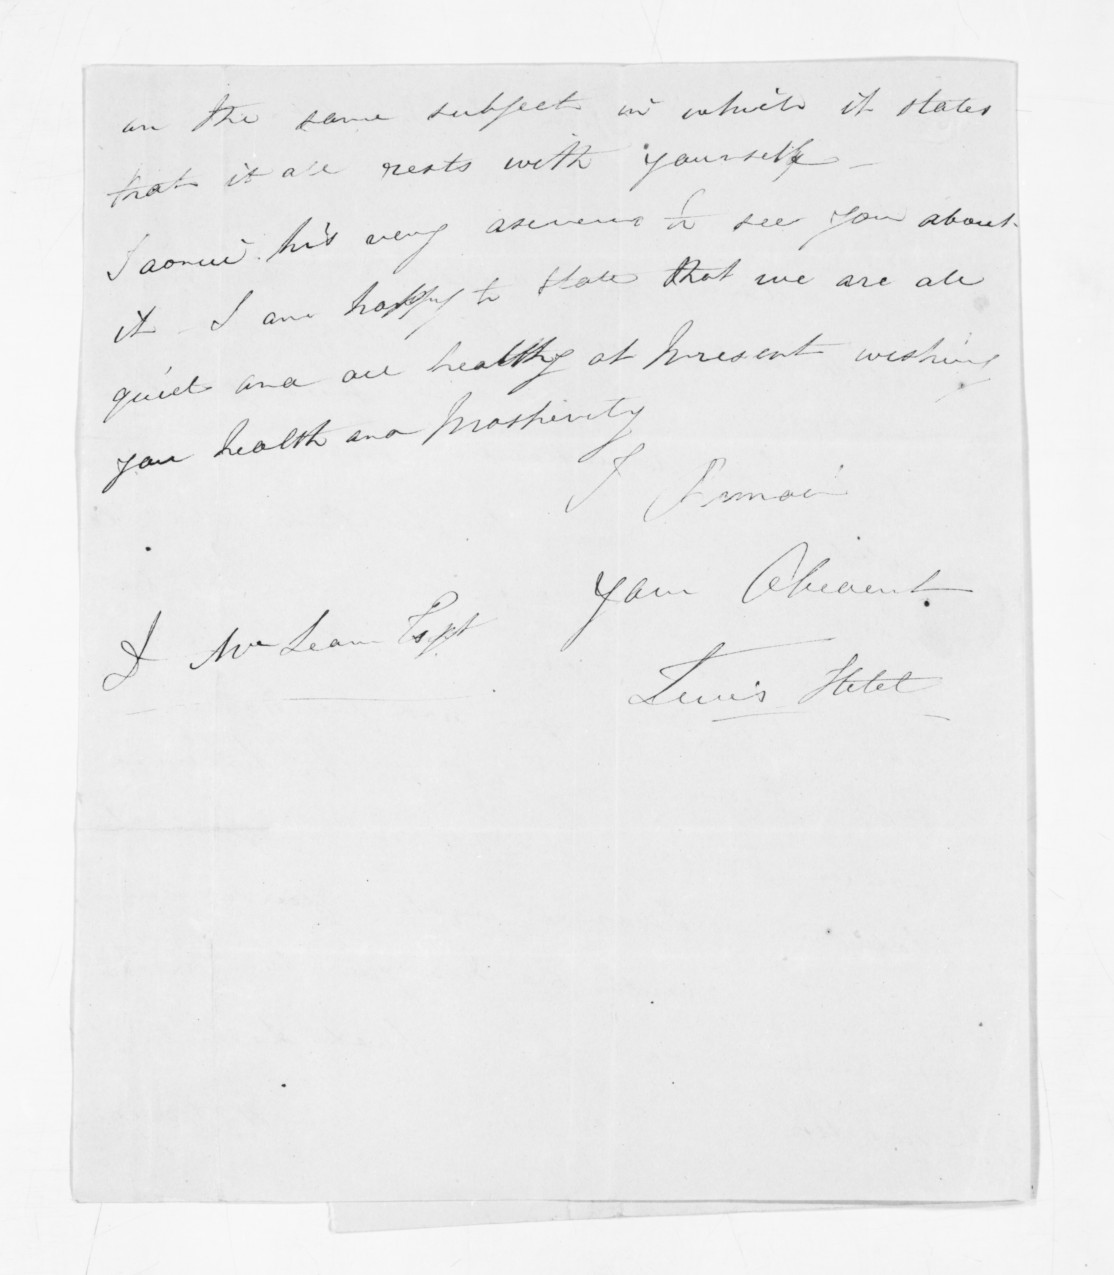 on the same subject in which it states
that it all rests with yourself -
his very to see you about
it - I am happy to state that we are all
quiet and all healthy at present wishing
you health and prosperity
I Remain
Your Obedient
D McLean Esqr
Lewis